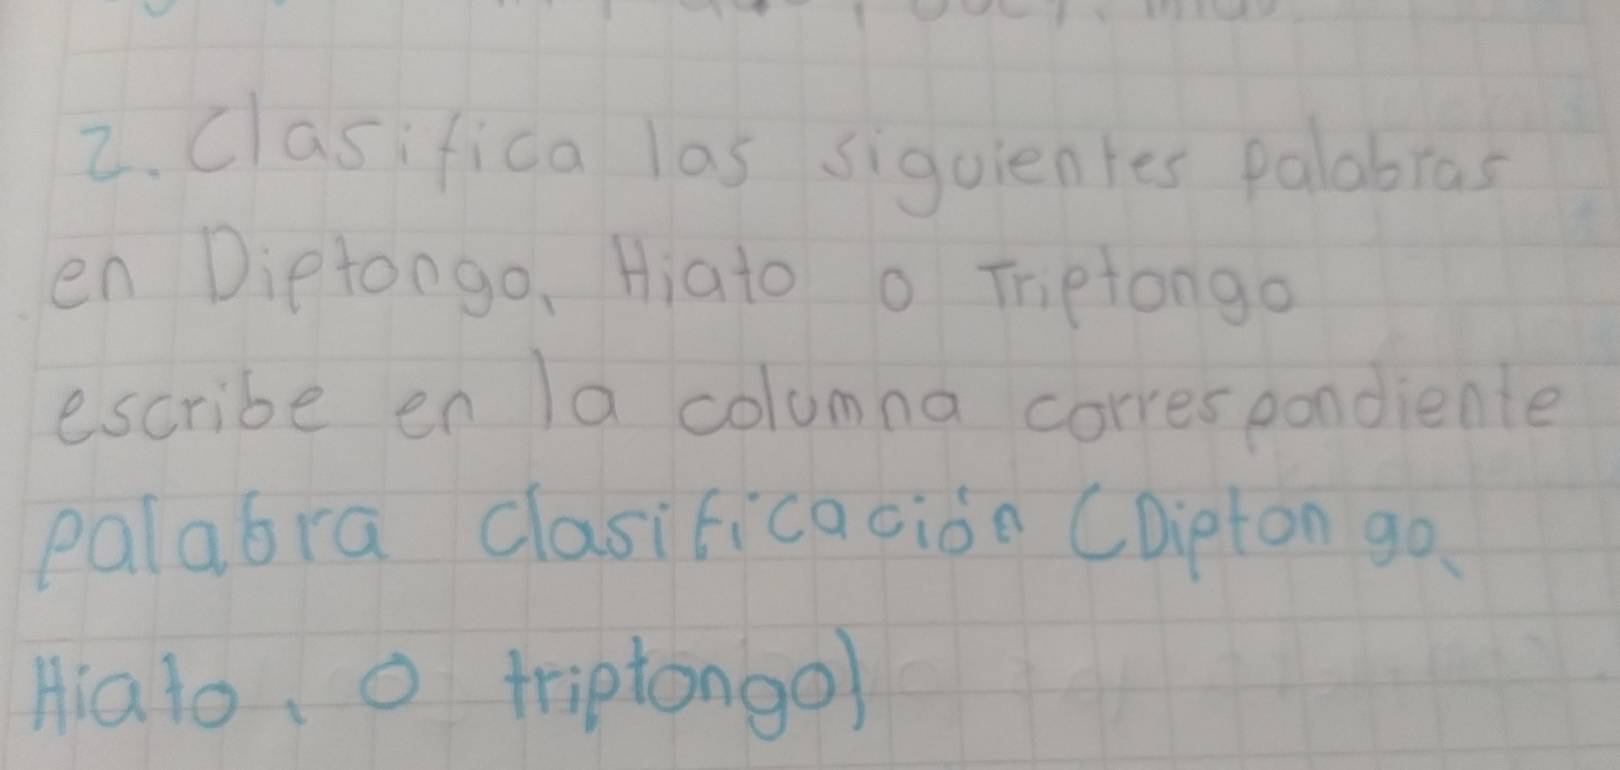 2. Clasifica las siguientes palabras
en Diptongo, Hiato o Triptongo
escribe en la columna correspondiente
palabra clasificación (Diptongo,
Hiato, o triptongo)